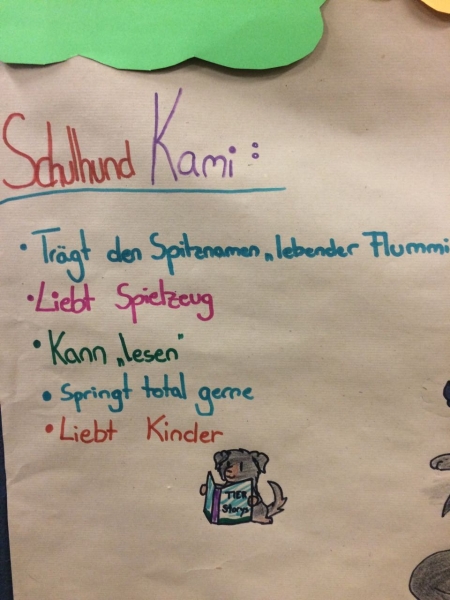 Schulhund Kami:
• Trägt den Spitznamen „lebender Flummi
• Liebt Spielzeug
• Kann „lesen"
• Springt total gerne
• Liebt Kinder
TIER
Storys